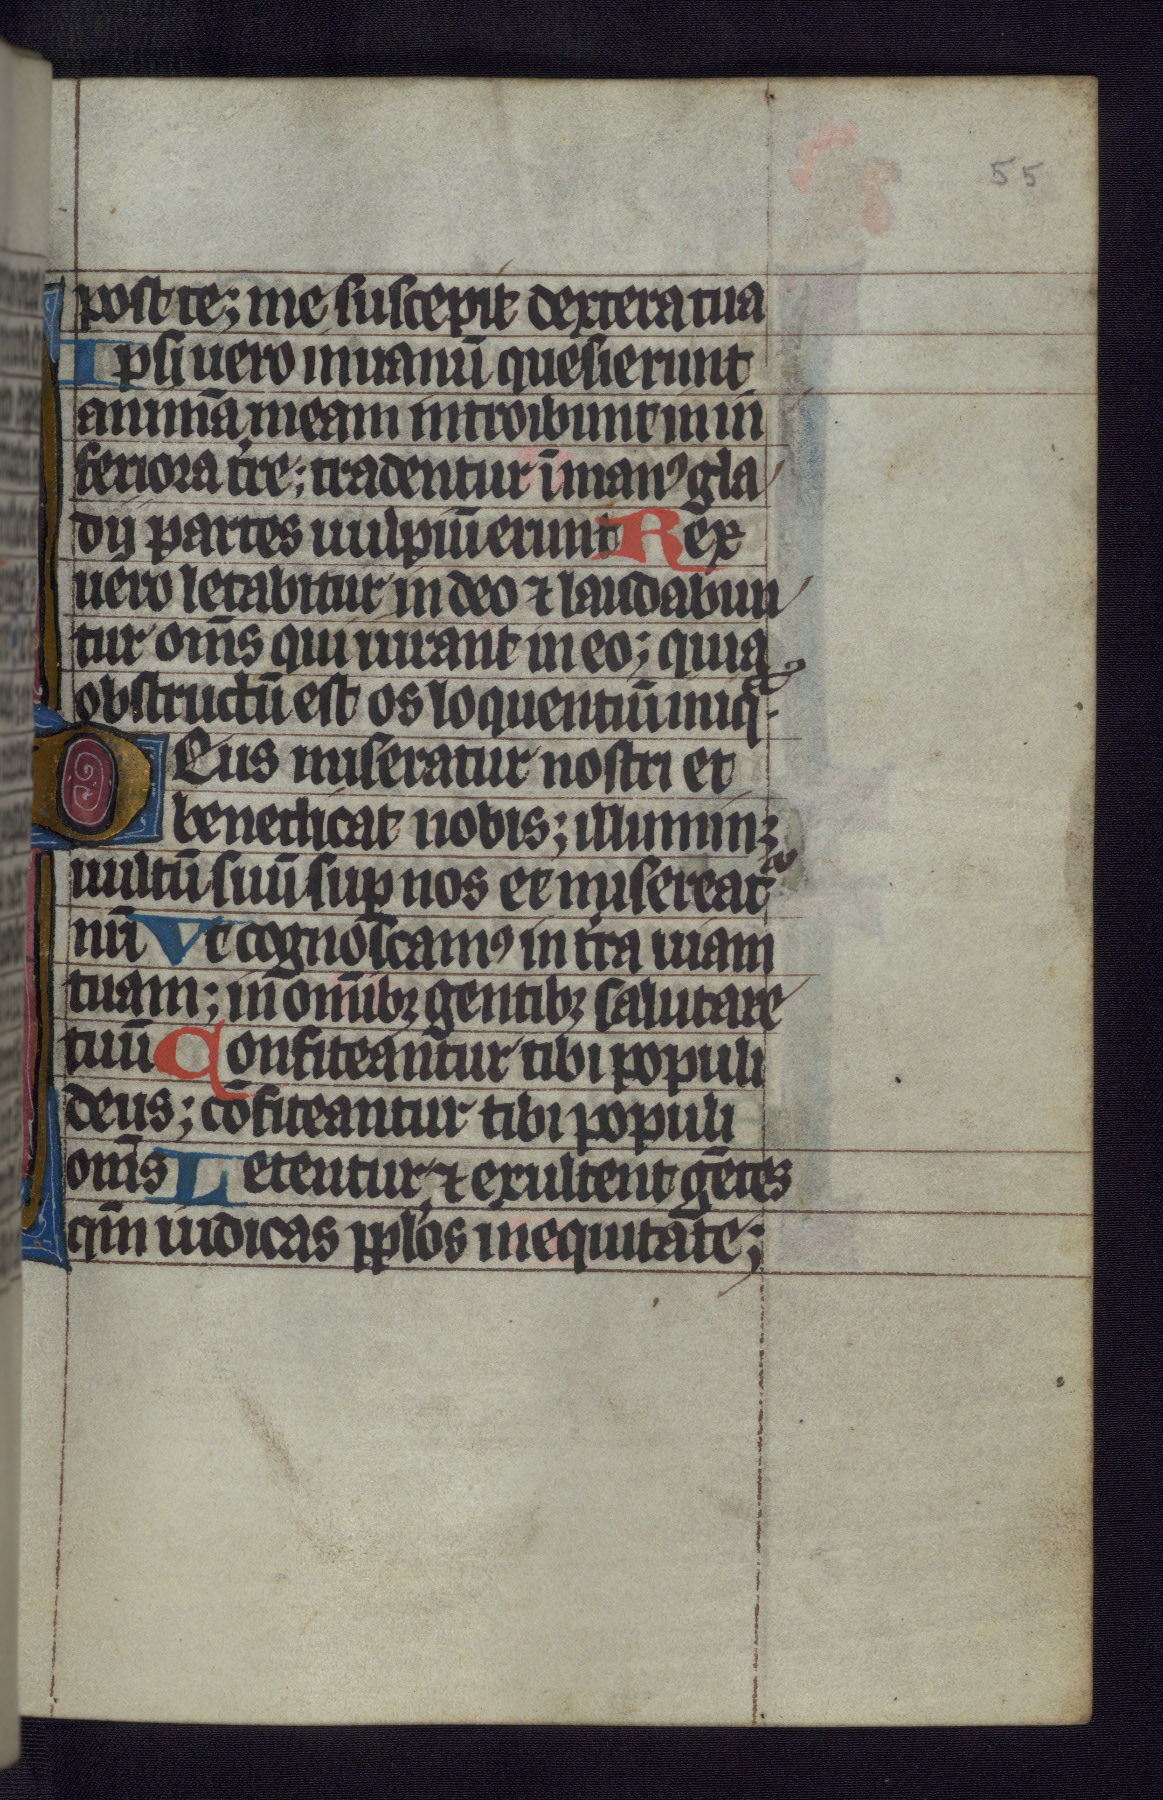 55
post te; me suscepit dextera tua
Ipsi uero in uanū quesierunt
animā meam introibunt in in
feriora tr̄e; tradentur ī manꝰ gla
dij partes uulpiū erunt Rex
uero letabitur in deo ⁊ laudabun
tur om̄s qui iurant in eo; quia
obstructū est os loquentiū iniqͣ
Deus misereatur nostri et
benedicat nobis; illuminꝫ
uultū suū sup nos et misereatͬ
nr̄i Vt cognoscamꝰ in tr̄a uiam
tuam; in om̄ibꝫ gentibꝫ salutare
tuū Confiteantur tibi populi
deus; cōfiteantur tibi populi
om̄s Letentur ⁊ exultent gētes
qm̄ iudicas pplōs in equitate;